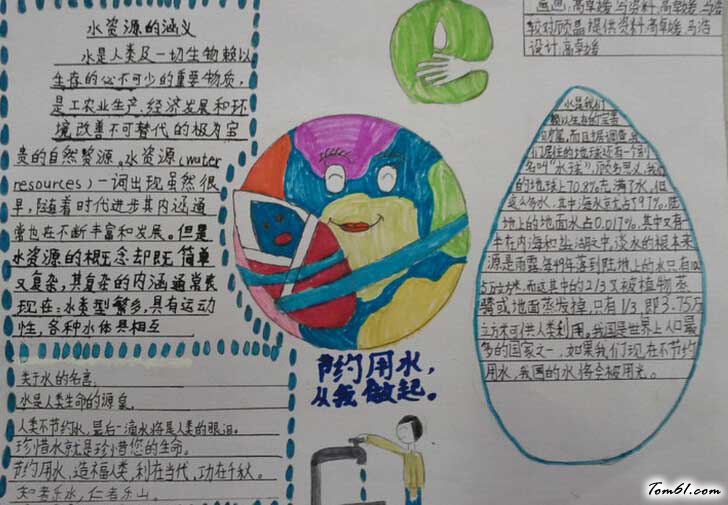 水资源的涵义
水是人类及一切生物赖以
生存的必不可少的重要物质,
是工农业生产、经济发展和环
境改善不可替代的极为宝
贵的自然资源。水资源(water
resources)一词出现虽然很
早,随着时代进步其内涵通
常也在不断丰富和发展。但是
水资源的概念却既简单
又复杂,其复杂的内涵通常表
现在:水类型繁多,具有运动
性,各种水体具相互
关于水的名言
水是人类生命的源泉
人类不节约水,最后一滴水将是人类的眼泪。
珍惜水就是珍惜您的生命。
节约用水,造福人类,利在当代,功在千秋。
知者乐水,仁者乐山。
节约用水,
从我做起。
画画:高卓媛 写资料:高卓媛、马浩
较对:顾晶 提供资料:高卓媛、马浩
设计:高卓媛
水是我们
赖以生存的宝贵
而且据调查
们居住的地球还有一个别
名叫"水球",顾名思义,我们
的地球上70.8%充满了水,但
这么多水,其中海水就占了97%,陆
地上的地面水占0.017%,其中又有一
半在内海和盐湖中,淡水的根本来
源是雨露,每年落到陆地上的水只有
万立方米,而这其中的2/3又被植物蒸
腾或地面蒸发掉,只有1/3,即3.75万
立方米可供人类利用,我国是世界上人口最
多的国家之一,如果我们现在不节约
用水,我国的水将会被用光。
Tom61.com